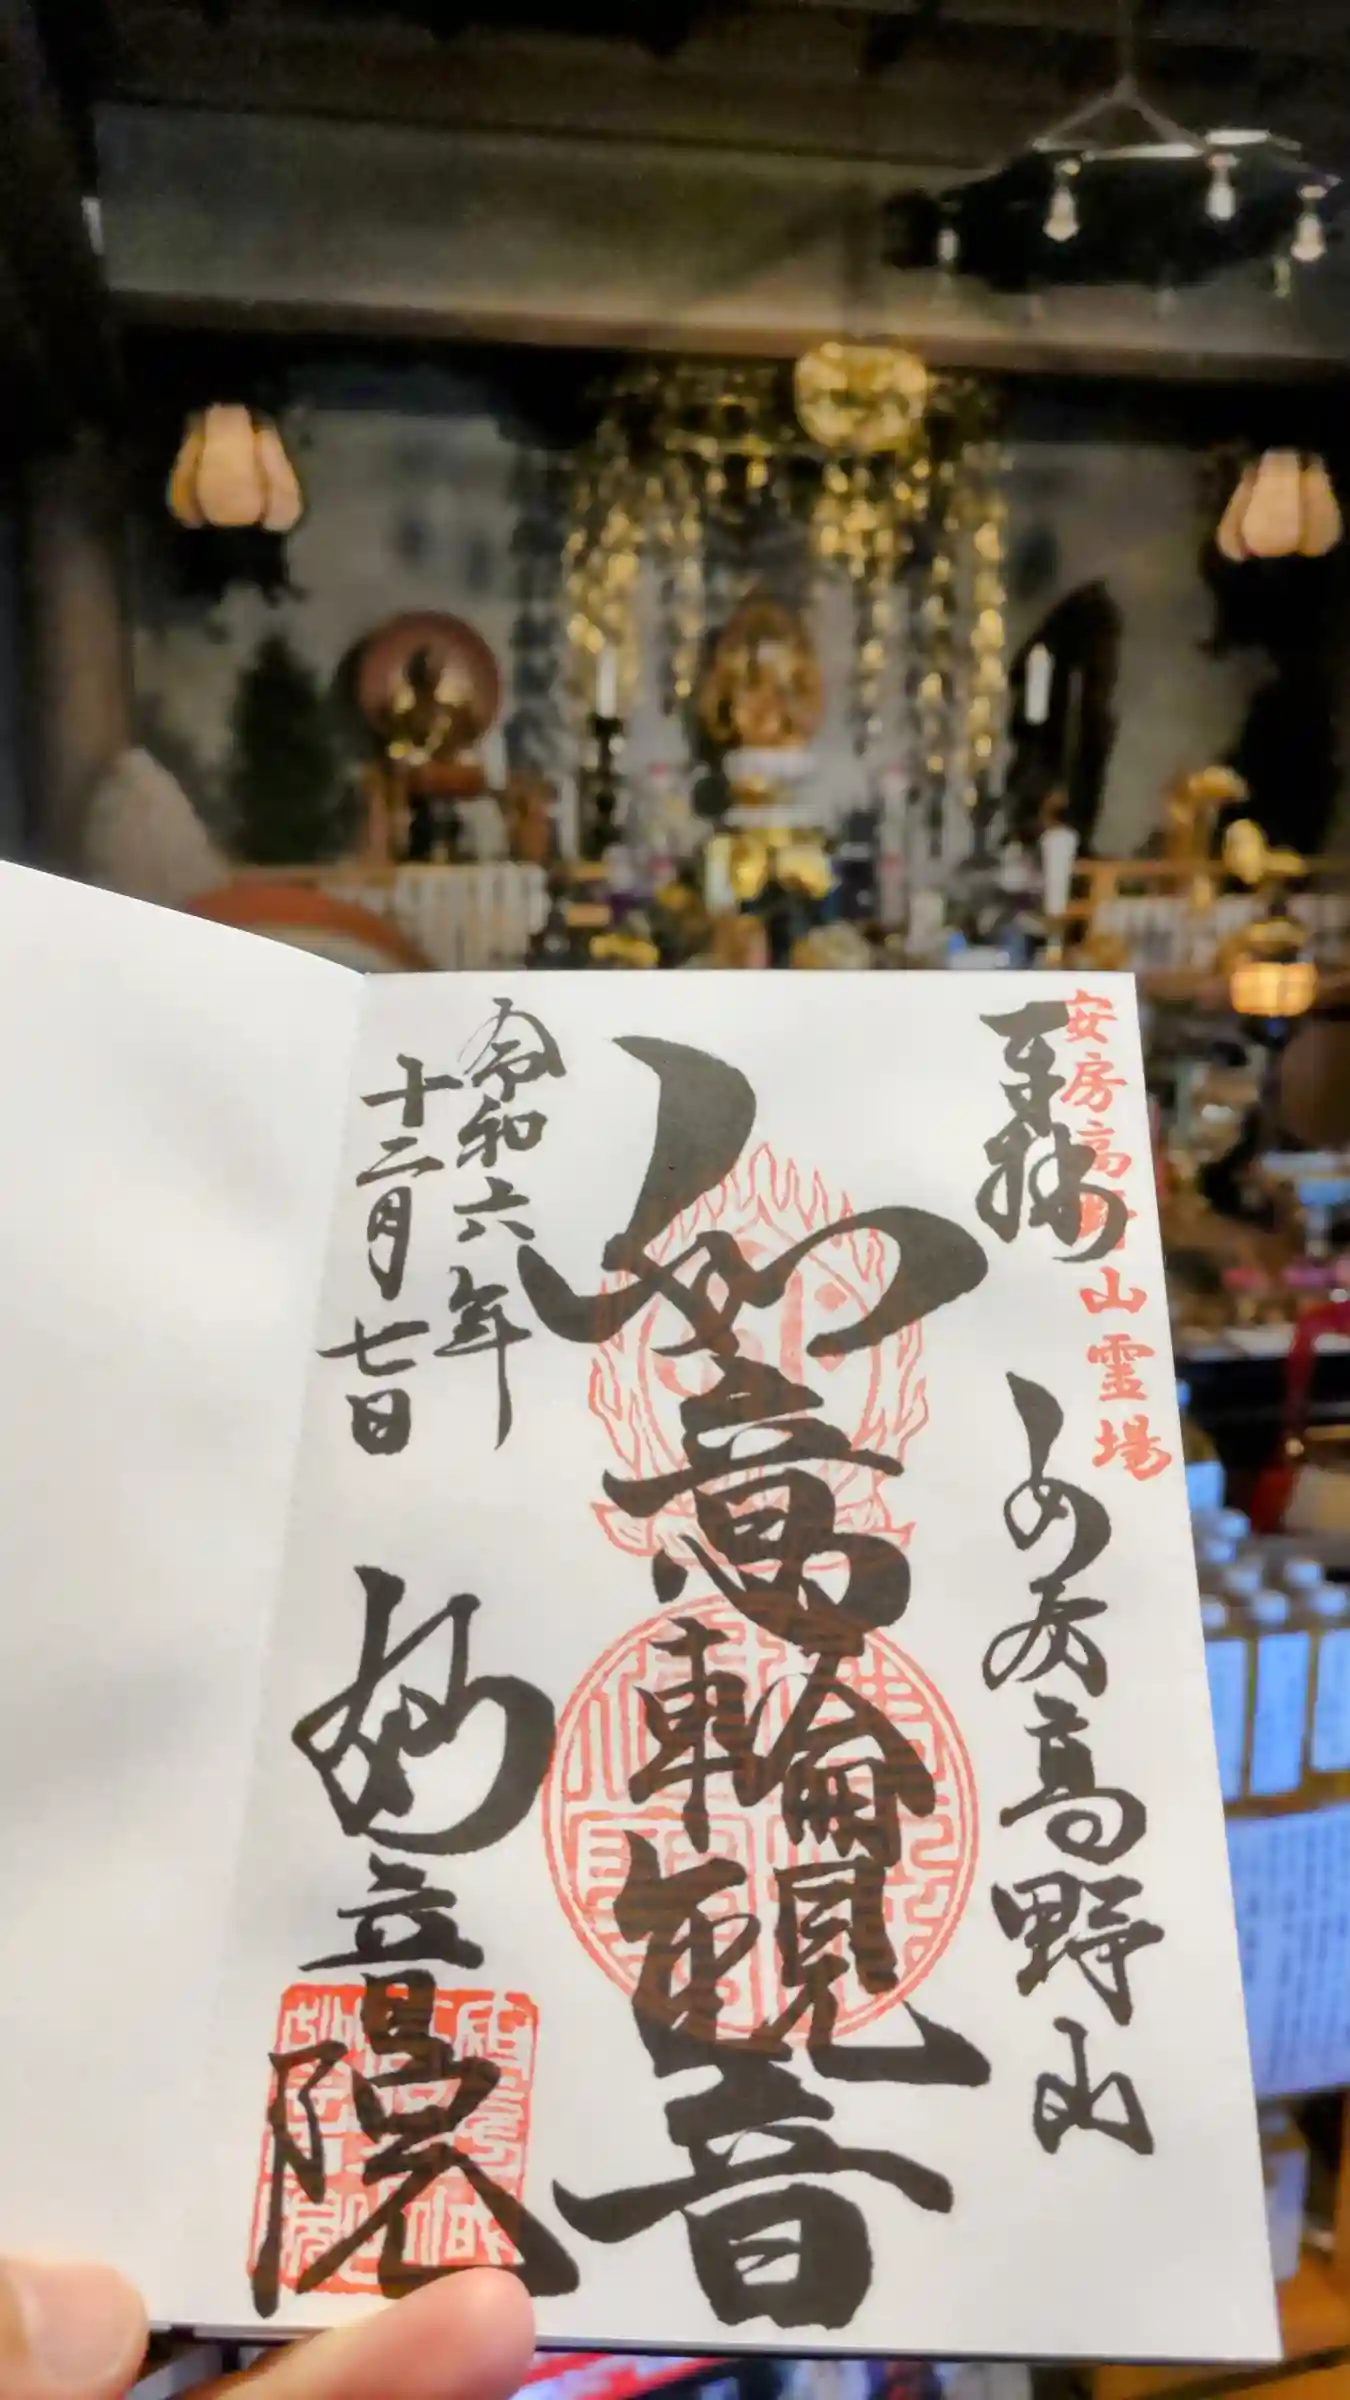 安房高野山霊場
奉拝
あ房高野山
如意輪観音
令和六年
十二月七日
妙音院